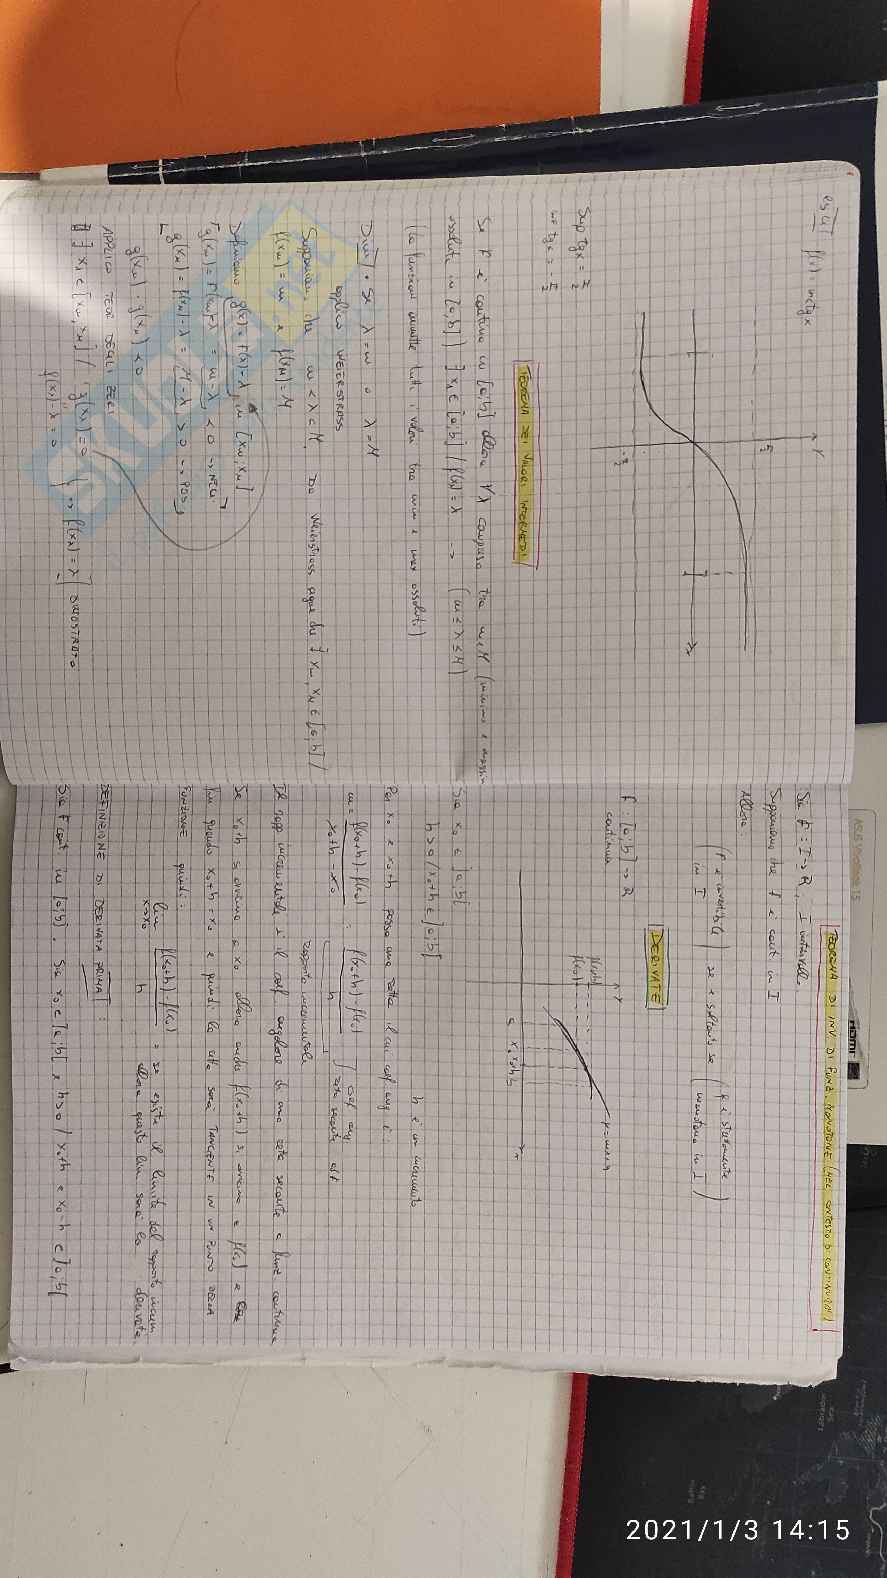 es(1) f(x) = arctgx
y
π/2
1
x
-π/2
Sup tgx = π/2
inf tgx = -π/2
TEOREMA DEI VALORI INTERMEDI
Se f è continua in [a;b] allora ∀λ compreso tra m e M (minimo e massimi
assoluti in [a;b]) ∃ xλ ∈ [a;b] / f(xλ) = λ → (m ≤ λ ≤ M)
(la funzione assume tutti i valori tra min e max assoluti)
Dim • Se λ = m o λ = M
applico WEIERSTRASS
Supponiamo che m < λ < M. Da Weierstrass segue che ∃ xm, xM ∈ [a;b] /
f(xm) = m e f(xM) = M
Definiamo g(x) = f(x) - λ, in [xm, xM]
g(xm) = f(xm) - λ = m - λ < 0 → NEG.
g(xM) = f(xM) - λ = M - λ > 0 → POS
g(xm) · g(xM) < 0
APPLICO TEO DEGLI ZERI
∃ xλ ∈ [xm, xM] / g(xλ) = 0 } → f(xλ) = λ DIMOSTRATO
f(xλ) - λ = 0
SKUOLA.net
TEOREMA DI INV. DI FUNZ. MONOTONE (NEL CONTESTO DI CONTINUITÀ)
Sia f: I → R, I intervallo
Supponiamo che f è cont in I
Allora:
(f è invertibile in I) se e soltanto se (f è strettamente monotona in I)
DERIVATE
f: [a;b] → R
continua
y
f(x0+h)
f(x0)
y = mx+q
a x0 x0+h b
x
Sia x0 ∈ ]a;b[
h > 0 / x0+h ∈ ]a;b[
h è un incremento
Per x0 e x0+h passa una retta il cui coef ang è:
m = f(x0+h) - f(x0) / x0+h - x0 = f(x0+h) - f(x0) / h } coef ang
rapporto incrementale
Il rapp incrementale è il coef angolare di una retta secante a funz continua
Se x0+h si avvicina a x0 allora anche f(x0+h) si avvicina a f(x0) e
fin quando x0+h = x0 e quindi la retta sarà TANGENTE IN UN PUNTO DELLA
FUNZIONE quindi:
lim x→x0 f(x0+h) - f(x0) / h = se esiste il limite del rapporto increm
allora questo lim sarà la derivata.
DEFINIZIONE DI DERIVATA PRIMA:
Sia f cont in [a;b]. Sia x0 ∈ ]a;b[ e h>0 / x0+h e x0-h ∈ ]a;b[
ASUS VivoBook 15
HDMI
2021/1/3 14:15